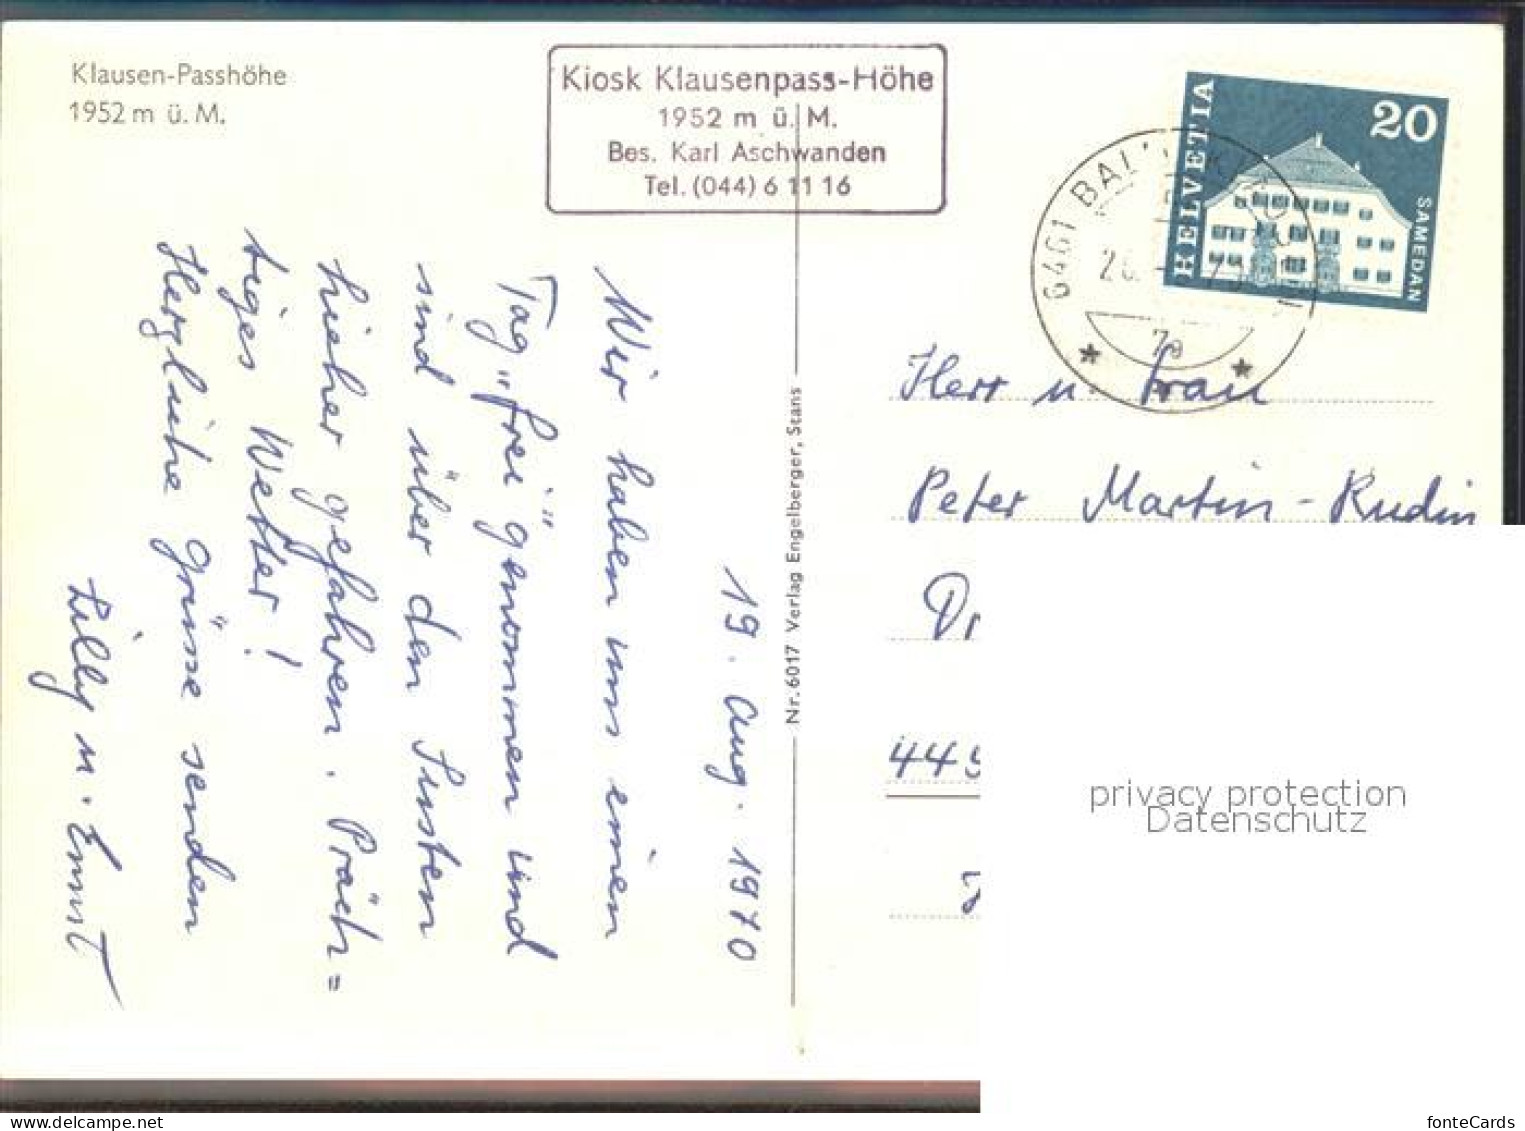 Klausen-Passhöhe
1952 m ü. M.
Kiosk Klausenpass-Höhe
1952 m ü. M.
Bes. Karl Aschwanden
Tel. (044) 6 11 16
HELVETIA
20
SAMEDAN
6461 BAL
19. Aug. 1970
Wir haben uns einen
Tag "frei" genommen und
sind über den Susten
hieher gefahren. Präch=
tiges Wetter!
Herzliche Grüsse senden
Lilly u. Ernst
Nr. 6017 Verlag Engelberger, Stans
Herr u. Frau
Peter Martin-Rudin
privacy protection
Datenschutz
www.delcampe.net
fonteCards